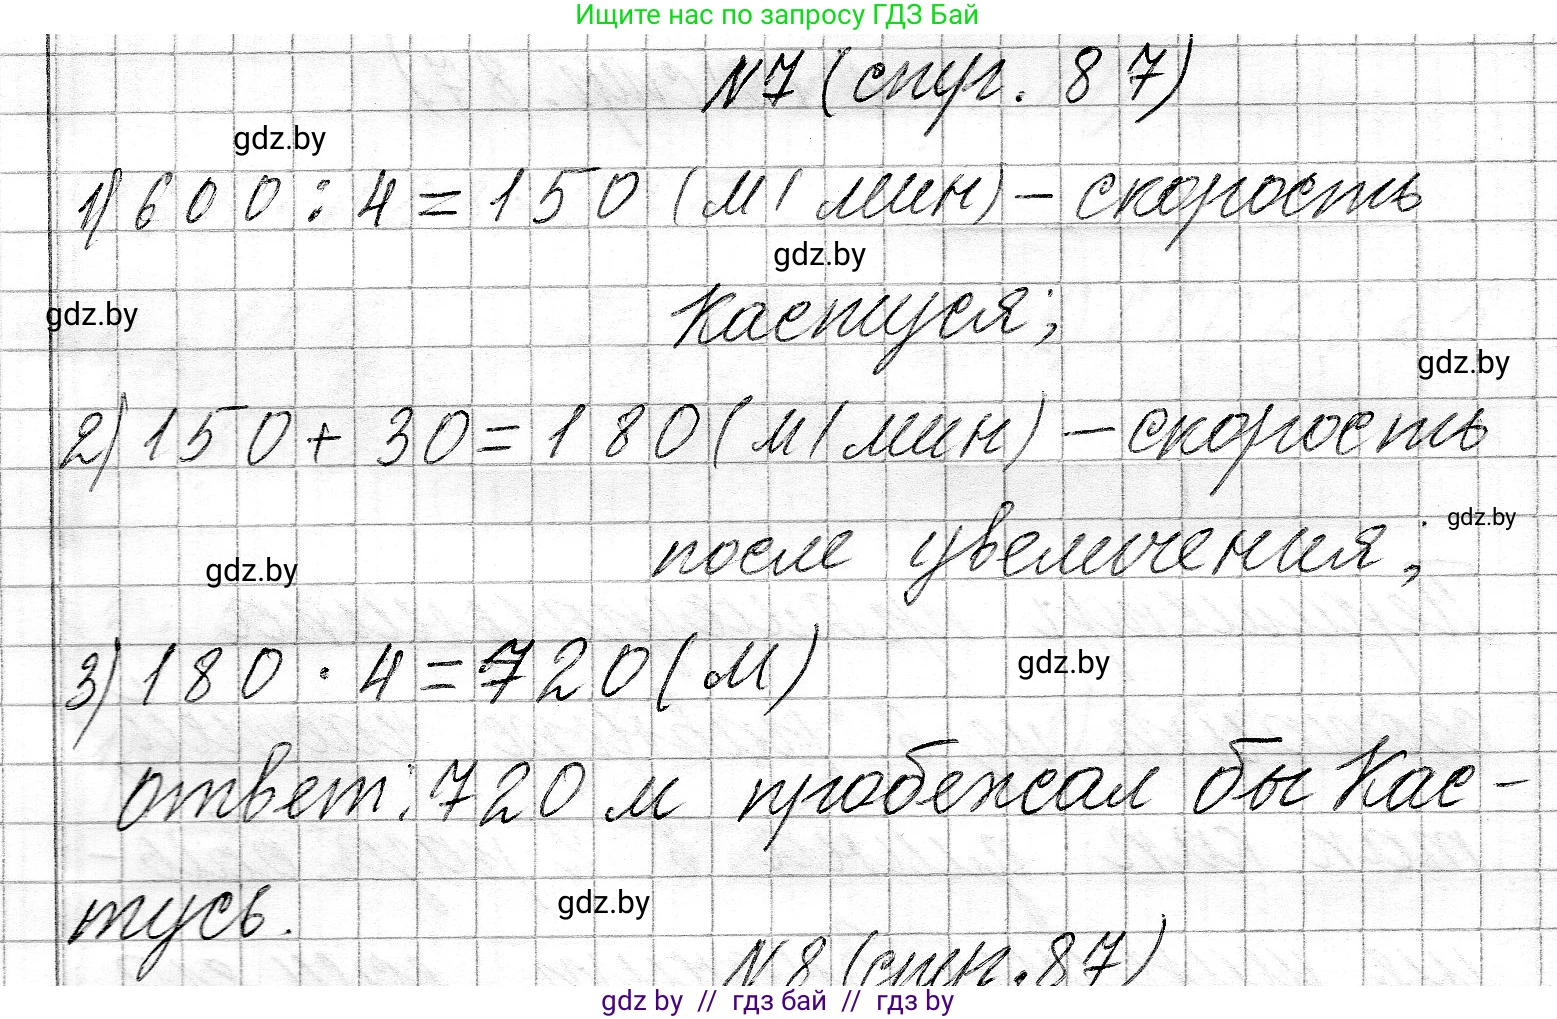 Ищите нас по запросу ГДЗ Бай
N7 (стр. 87)
gdz.by
1) 600 : 4 = 150 (м/мин) – скорость
gdz.by
Кастуся;
gdz.by
gdz.by
2) 150 + 30 = 180 (м/мин) – скорость
после увеличения;
gdz.by
gdz.by
3) 180 · 4 = 720 (м)
gdz.by
ответ: 720 м пробежал бы Кас-
тусь.
gdz.by
N8 (стр. 87)
gdz by // гдз бай // гдз by